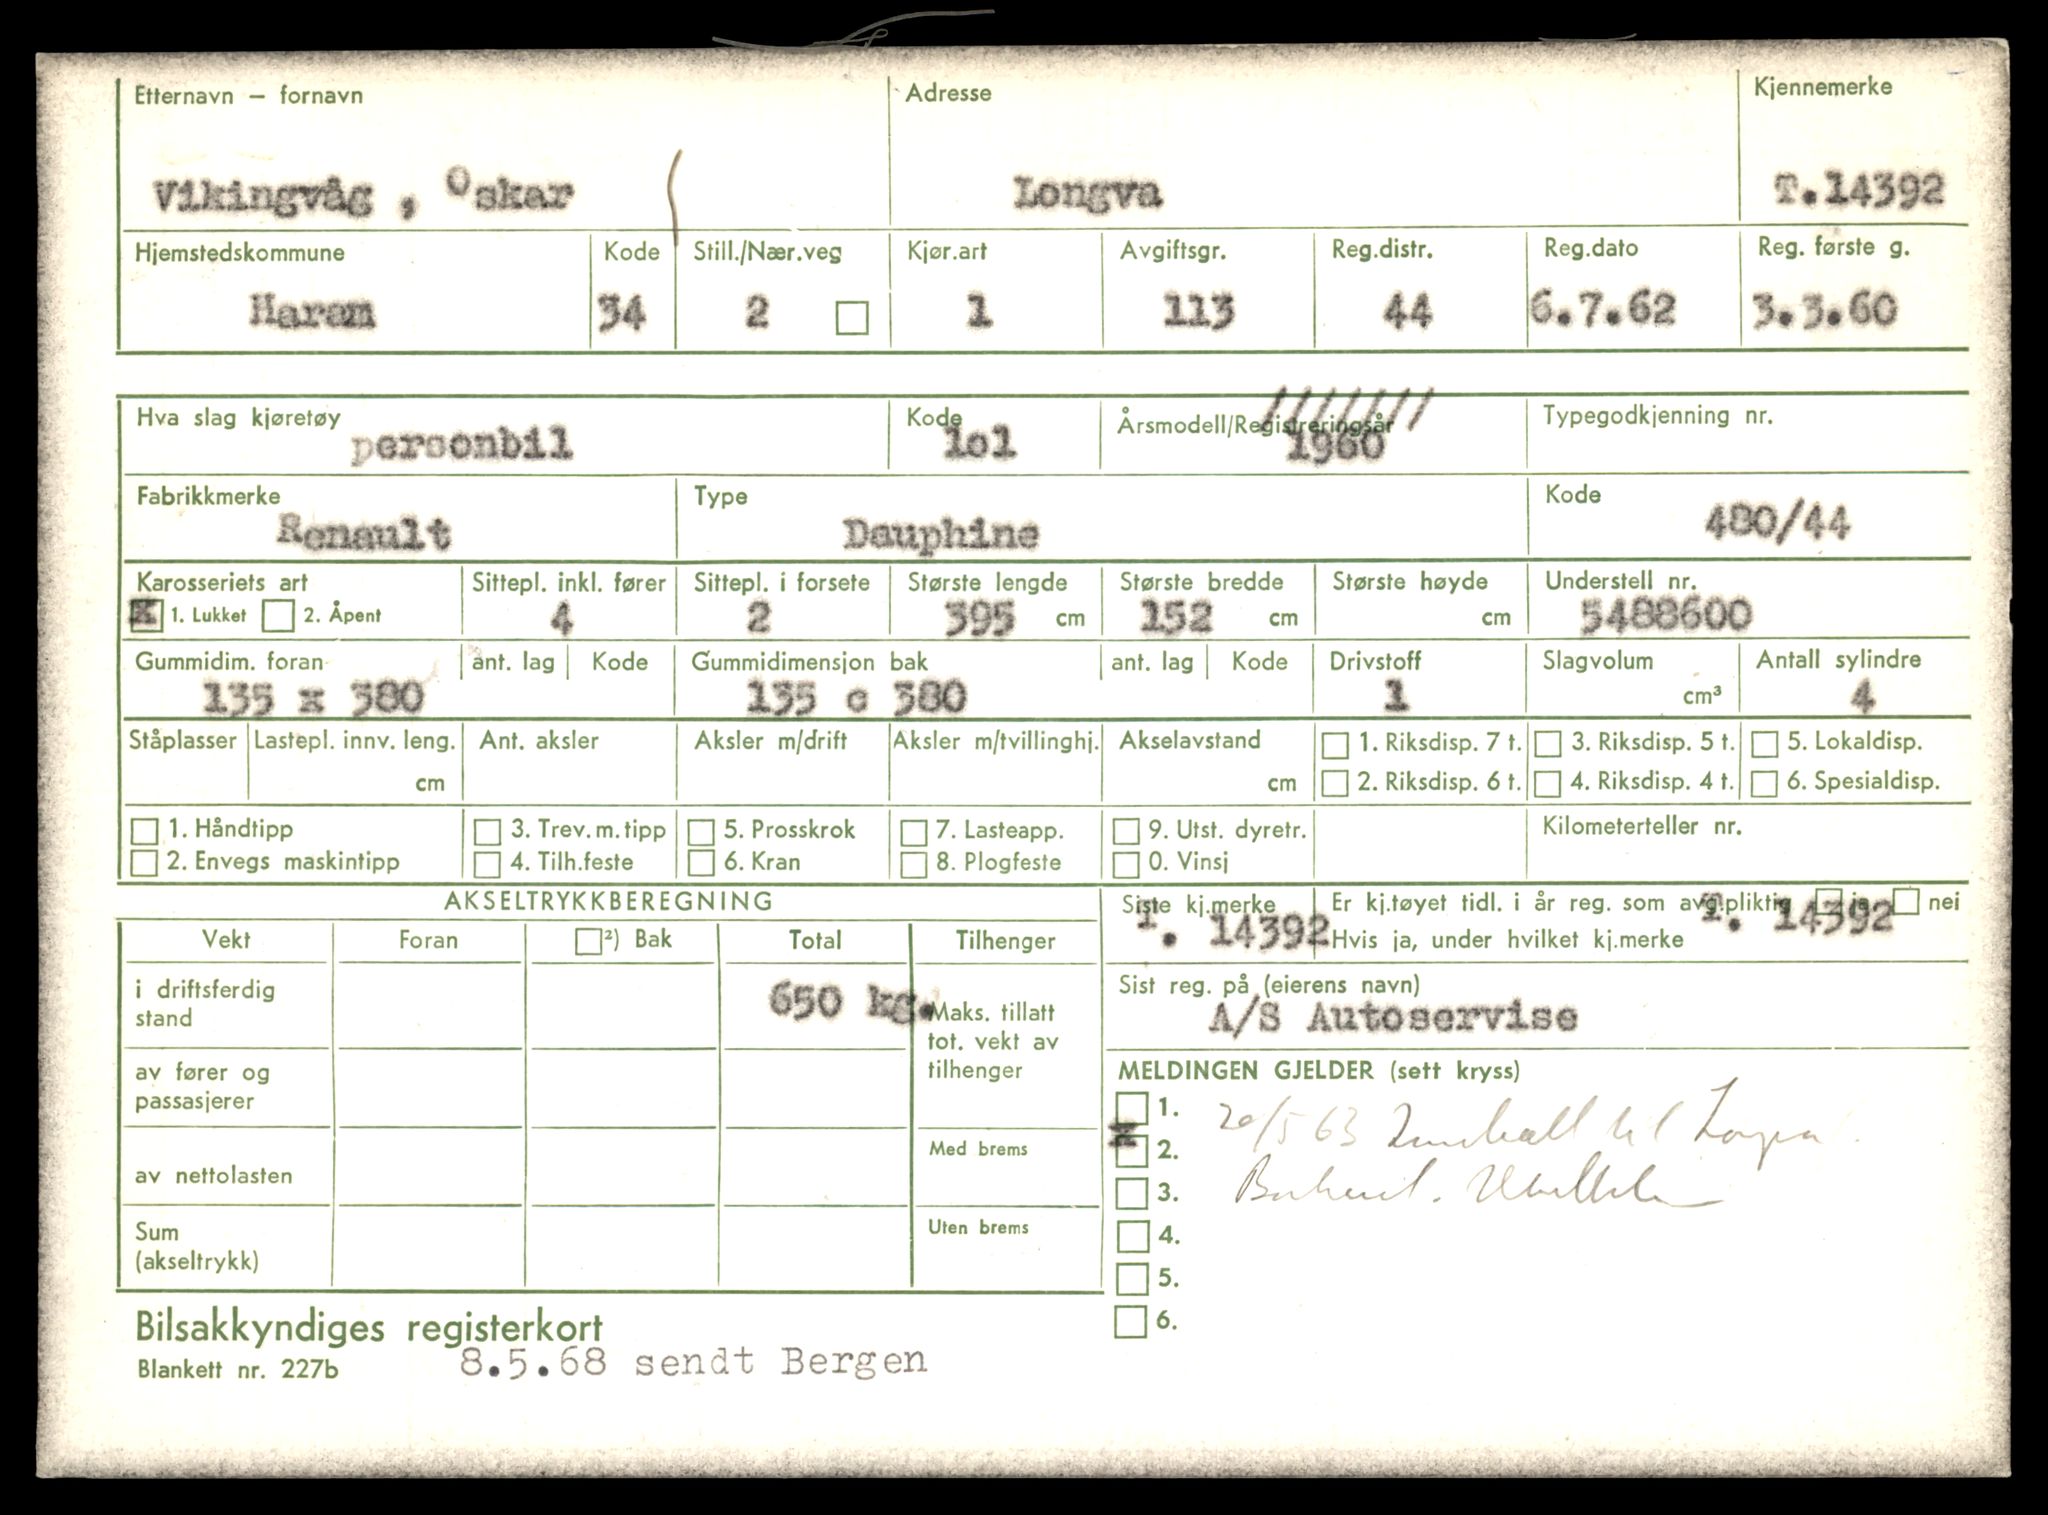 Etternavn – fornavn Adresse Kjennemerke
Vikingvåg , Oskar Longva T.14392
Hjemstedskommune Kode Still./Nær.veg Kjør.art Avgiftsgr. Reg.distr. Reg.dato Reg. første g.
Haram 34 2 1 113 44 6.7.62 3.3.60
Hva slag kjøretøy Kode Årsmodell/Registreringsår Typegodkjenning nr.
personbil lol 1960
Fabrikkmerke Type Kode
Renault Dauphine 480/44
Karosseriets art Sittepl. inkl. fører Sittepl. i forsete Største lengde Største bredde Største høyde Understell nr.
x 1. Lukket 2. Åpent 4 2 395 cm 152 cm cm 5488600
Gummidim. foran ant. lag Kode Gummidimensjon bak ant. lag Kode Drivstoff Slagvolum Antall sylindre
135 x 380 135 c 380 1 cm³ 4
Ståplasser Lastepl. innv. leng. Ant. aksler Aksler m/drift Aksler m/tvillinghj. Akselavstand 1. Riksdisp. 7 t. 3. Riksdisp. 5 t. 5. Lokaldisp.
cm cm 2. Riksdisp. 6 t. 4. Riksdisp. 4 t. 6. Spesialdisp.
1. Håndtipp 3. Trev. m. tipp 5. Prosskrok 7. Lasteapp. 9. Utst. dyretr. Kilometerteller nr.
2. Envegs maskintipp 4. Tilh.feste 6. Kran 8. Plogfeste 0. Vinsj
AKSELTRYKKBEREGNING Siste kj.merke Er kj.tøyet tidl. i år reg. som avg.pliktig ja nei
T. 14392 T. 14392
Vekt Foran ²) Bak Total Tilhenger Hvis ja, under hvilket kj.merke
i driftsferdig stand 650 kg. Maks. tillatt tot. vekt av tilhenger
Sist reg. på (eierens navn)
A/S Autoservise
av fører og passasjerer
MELDINGEN GJELDER (sett kryss)
1. 20/5 63 til
x 2.
av nettolasten Med brems
3.
Sum (akseltrykk) Uten brems
4.
5.
6.
Bilsakkyndiges registerkort
Blankett nr. 227b 8.5.68 sendt Bergen